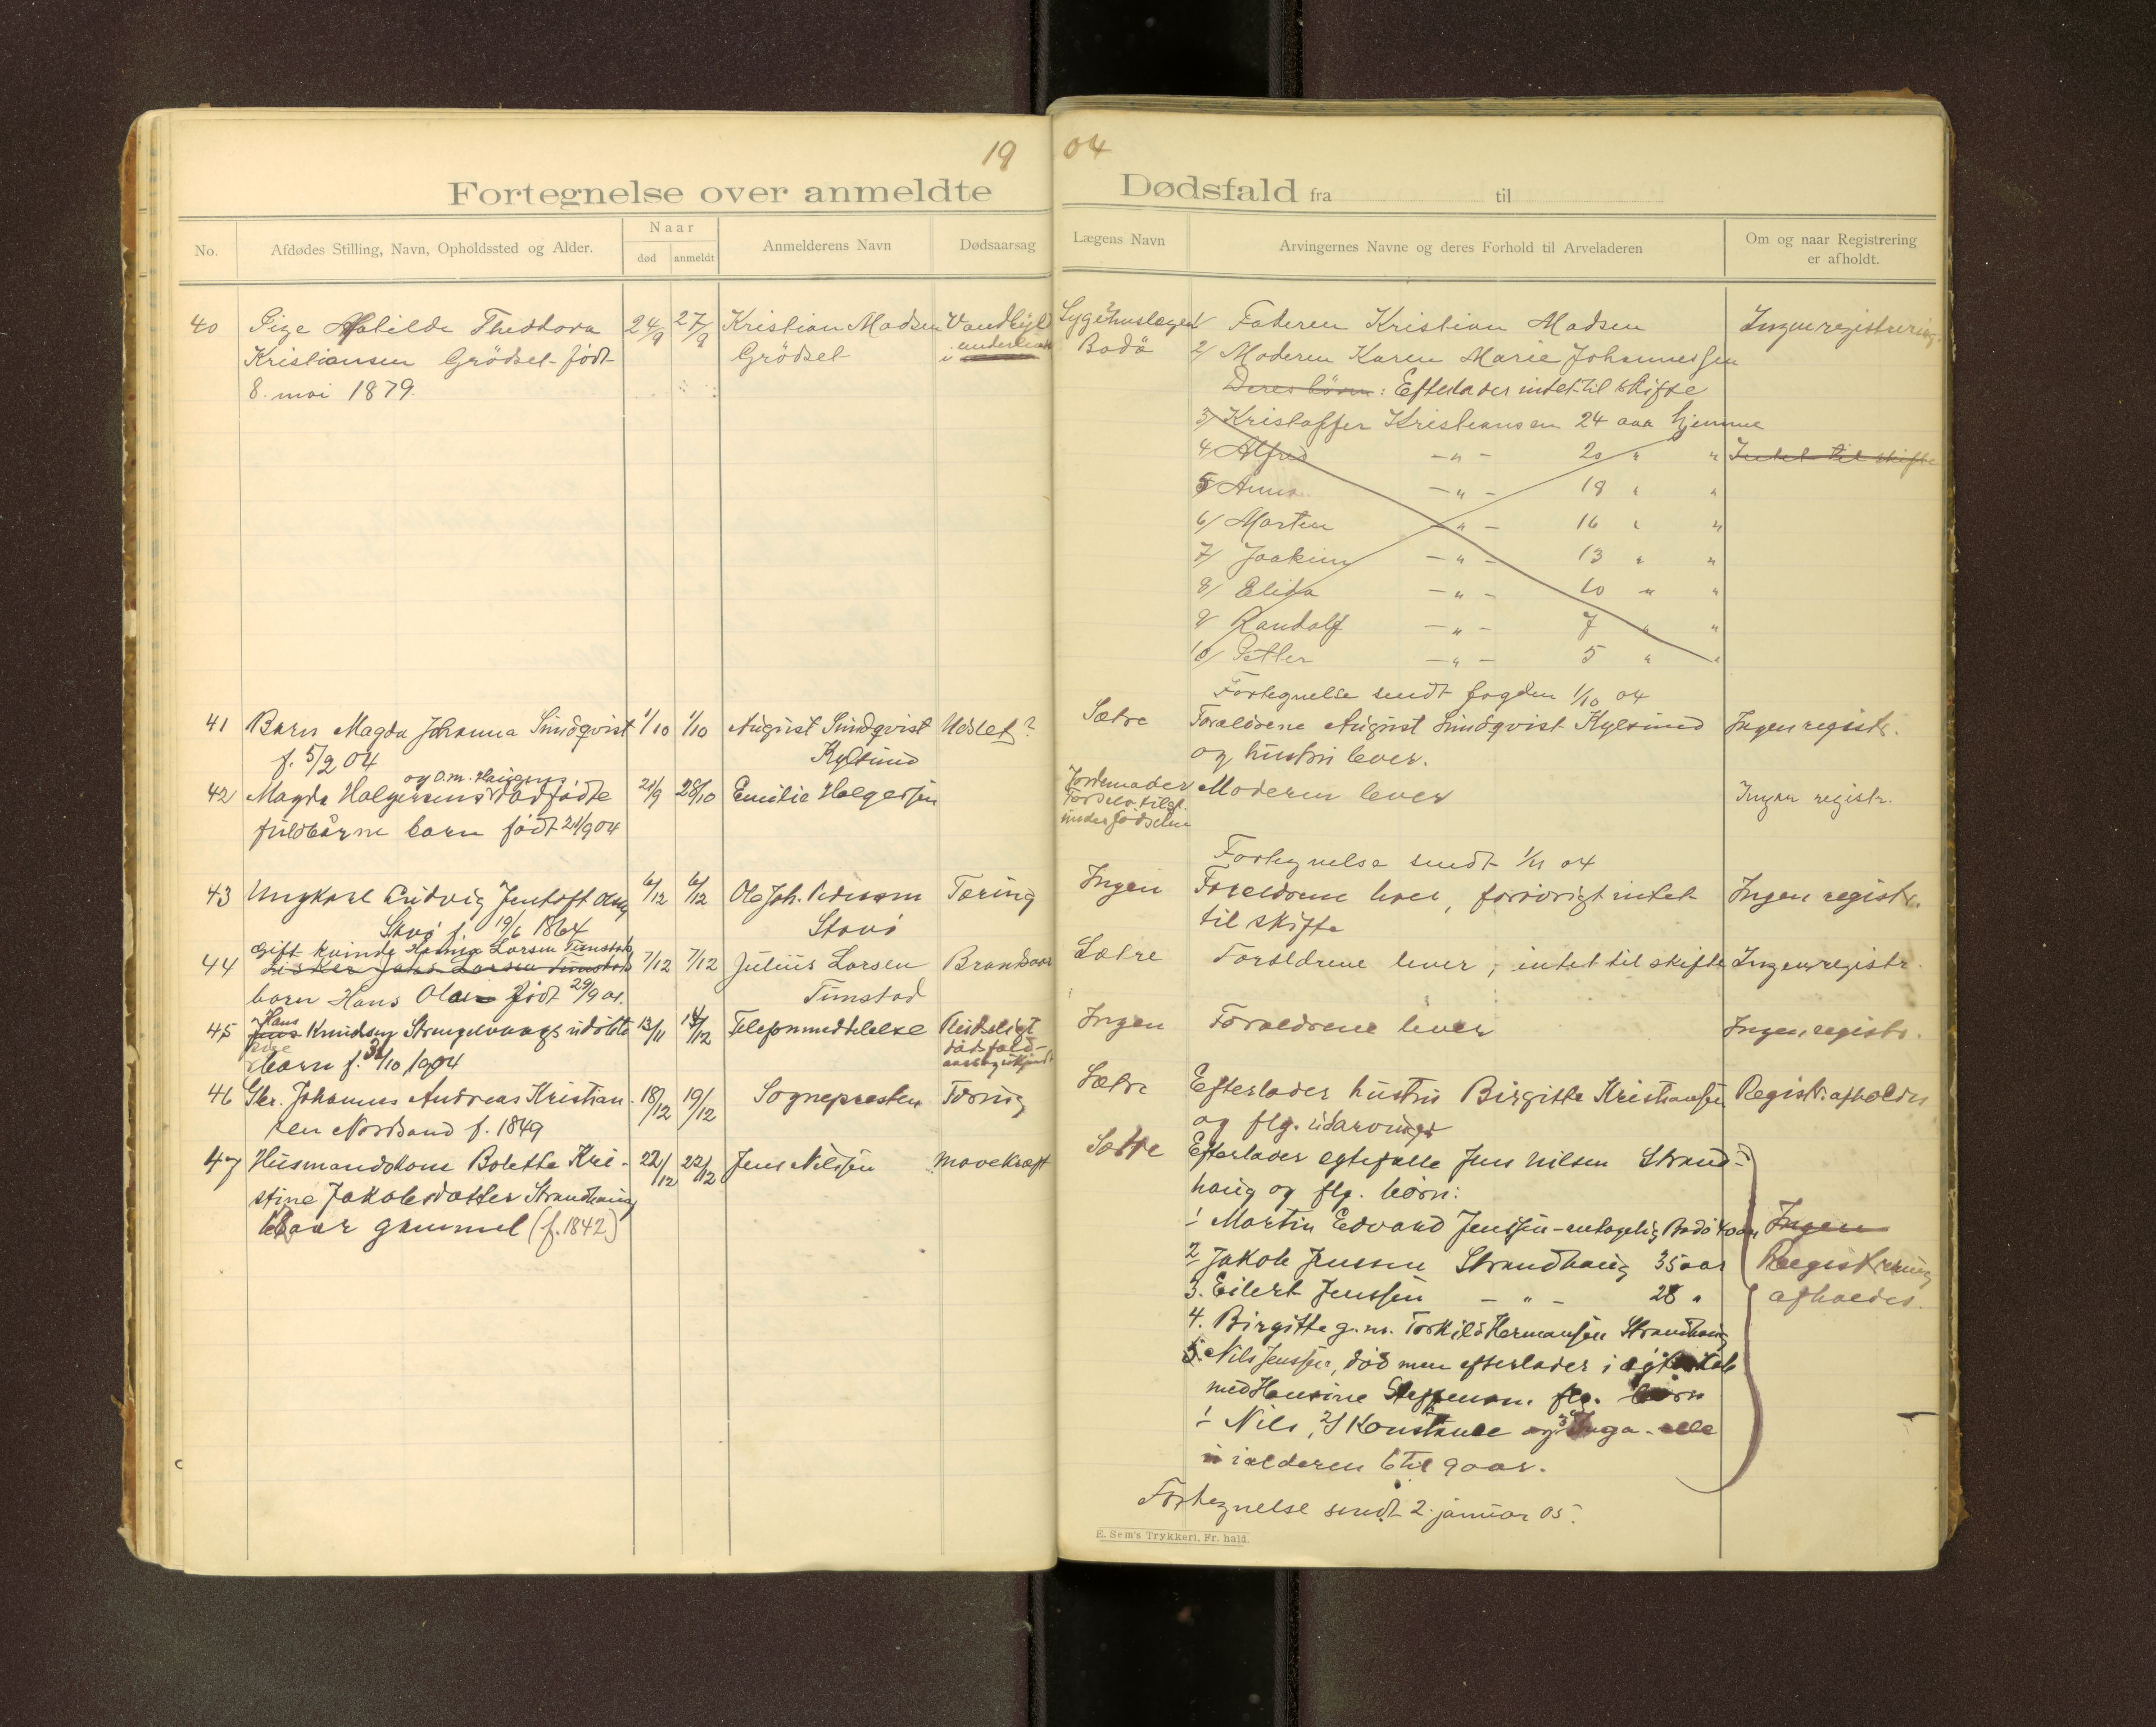 19 04
Fortegnelse over anmeldte Dødsfald fra til
No.
Afdødes Stilling, Navn, Opholdssted og Alder.
Naar
død
anmeldt
Anmelderens Navn
Dødsaarsag
Lægens Navn
Arvingernes Navne og deres Forhold til Arveladeren
Om og naar Registrering
er afholdt.
40 Pige Matilde Theodora 24/9 27/9 Kristian Madsen
Kristiansen Grödset født Grödset
8. mai 1879.
Sygehuslægen
Bodö
1/ Faderen Kristian Madsen Ingen registrering.
2/ Moderen Karen Marie Johannessen
Deres börn: Efterlader intet til skifte
3/ Kristoffer Kristiansen 24 aar hjemme
4/ Alfred -"- 20 " " Intet til skifte
5/ Anna -"- 18 " "
6/ Morten -"- 16 " "
7/ Joakim -"- 13 " "
8/ Elida -"- 10 " "
9/ Randolf -"- 7 " "
10/ Petter -"- 5 " "
Fortegnelse sendt fogden 1/10 04
41 Barn Magda Johanna Sundqvist 1/10 1/10 August Sundqvist Udslet? Sætre Forældrene August Sundqvist Kylsund Ingen registr.
f. 5/2 04 Kylsund og hustru lever.
og O.m. Haugens
42 Magda Holgersens dødfødte 21/9 28/10 Emilie Holgersen Jordemoder Moderen lever Ingen registr.
fuldbårne barn født 21/9 04 under fødselen
Fortegnelse sendt 1/11 04
43 Ungkarl Ludvig Jentoft 6/12 6/12 Ole Joh. Pedersen Tæring Ingen Forældrene lever, forøvrigt intet Ingen registr.
Stavö f. 19/6 1864 Stavö til skifte
Gift kvinde Hanna Larsen Timstad
44 Fisker Larsen Timstad 7/12 7/12 Julius Larsen Brandsaar Sætre Forældrene lever; intet til skifte Ingen registr.
barn Hans Olai født 29/9 01. Timstad
Hans
45 Jens Knudsen Strengelvaags udöbte 13/11 14/12 Telefonmeddelelse Pludseligt Ingen Forældrene lever Ingen registr.
pige dødsfald
barn f. 31/10 1904
46 Gbr. Johannes Andreas Kristian- 18/12 19/12 Sognepresten Tæring Sætre Efterlader hustru Birgitte Kristiansen Registr. afholdes
sen Nordsand f. 1849 og flg. udarvinger
47 Husmandskone Bolette Kri- 22/12 22/12 Jens Nilssen Mavekræft Sætre Efterlader egtefælle Jens Nilsen Strand-
stine Jakobsdatter Strandhaug haug og flg. börn:
aar gammel (f. 1842)
1 Martin Edvard Jenssen - antagelig Bodö 40 aar Ingen
2 Jakob Jenssen Strandhaug 35 aar Registrering
3. Eilert Jenssen - " - 28 " afholdes.
4. Birgitte g. m. Torkild Hermansen Strandhaug
5. Nils Jenssen, död men efterlader i egteskab
med Hansine Steffensen flg. börn
1 Nils, 2/ Konstanse og 3 Inga - alle
i alderen 6 til 9 aar.
Fortegnelse sendt 2. januar 05.
E. Sem's Trykkeri, Fr. hald.